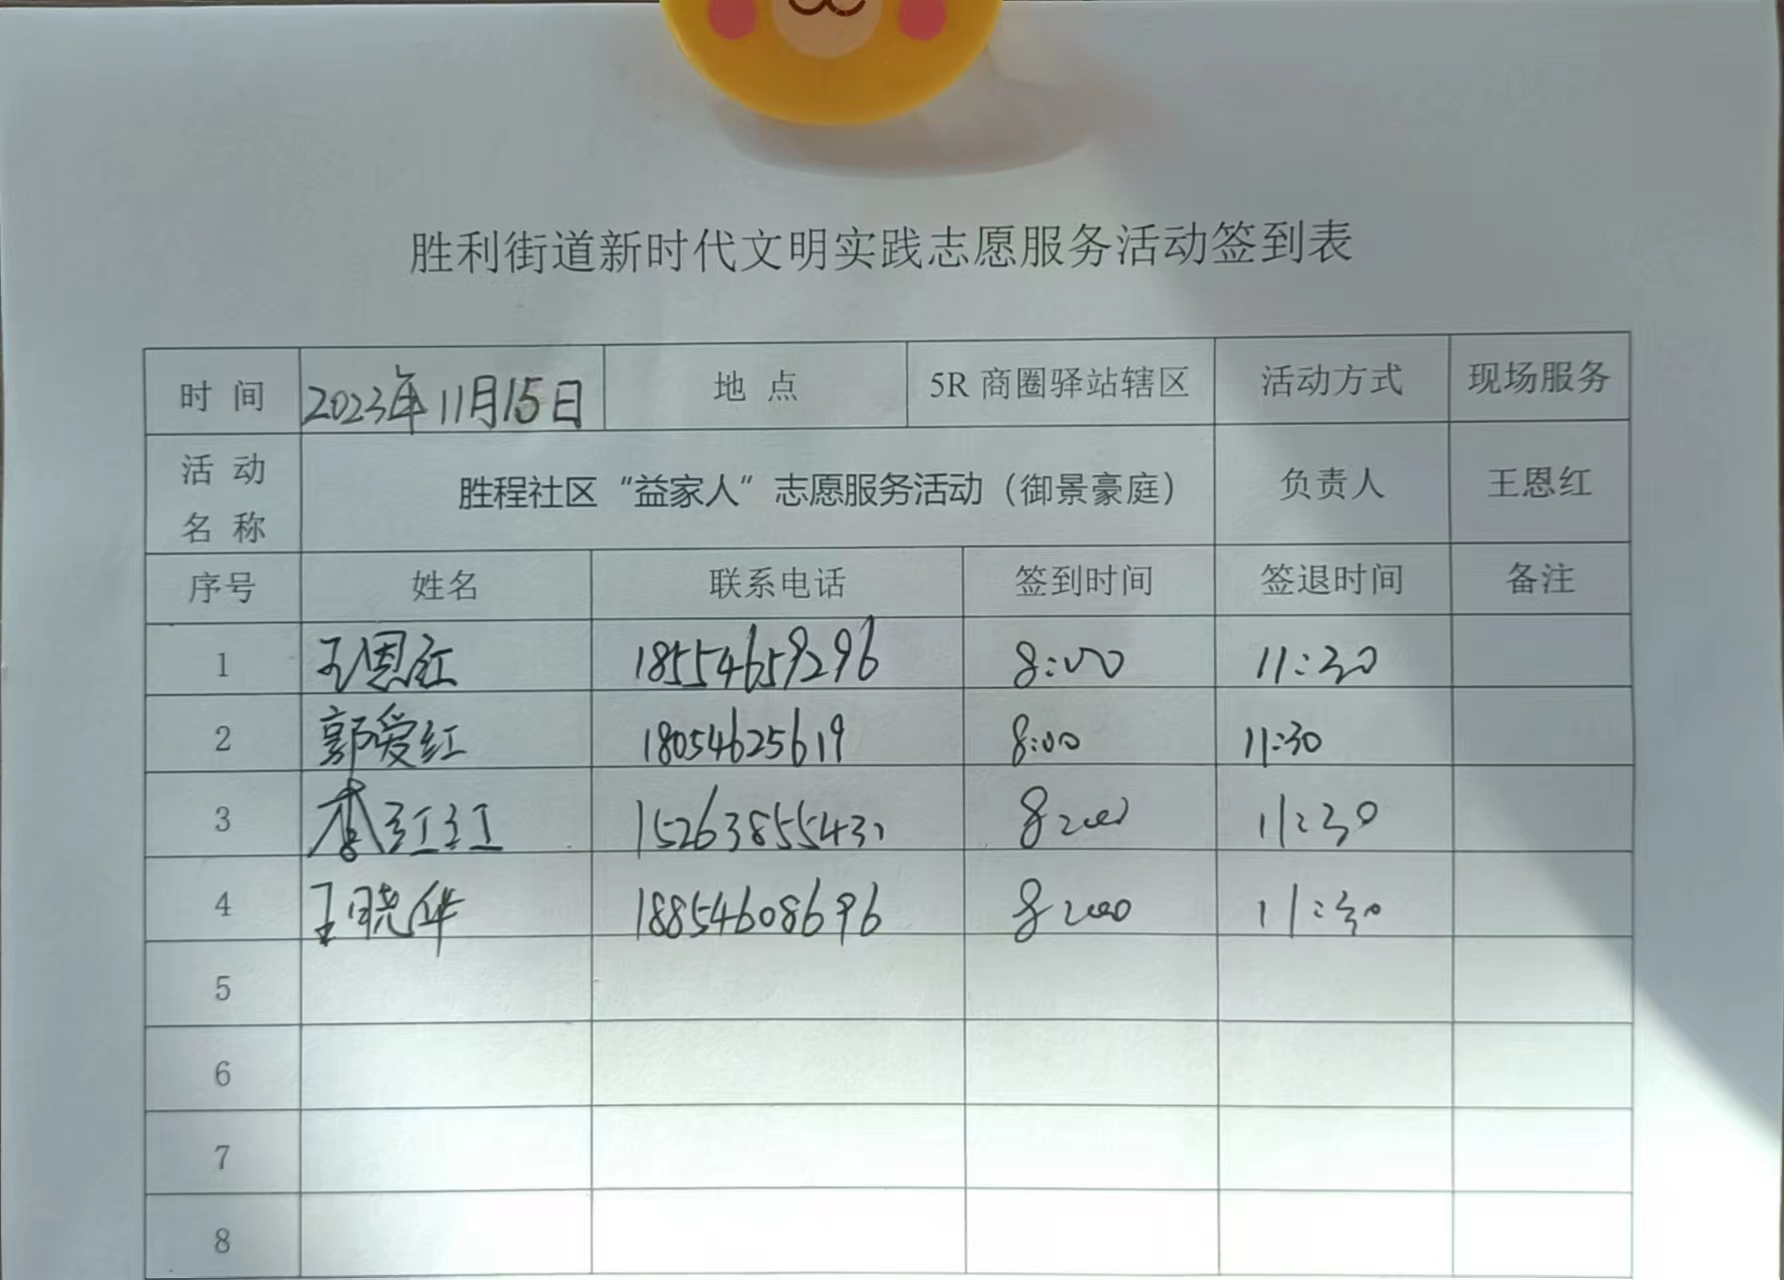 胜利街道新时代文明实践志愿服务活动签到表
时 间 2023年11月15日 地 点 5R 商圈驿站辖区 活动方式 现场服务
活 动
名 称 胜程社区“益家人”志愿服务活动（御景豪庭） 负责人 王恩红
序号 姓名 联系电话 签到时间 签退时间 备注
1 王恩红 18554659296 8:00 11:30
2 郭爱红 18054625619 8:00 11:30
3 李红红 15263855431 8:00 11:30
4 王晓华 18854608696 8:00 11:30
5
6
7
8